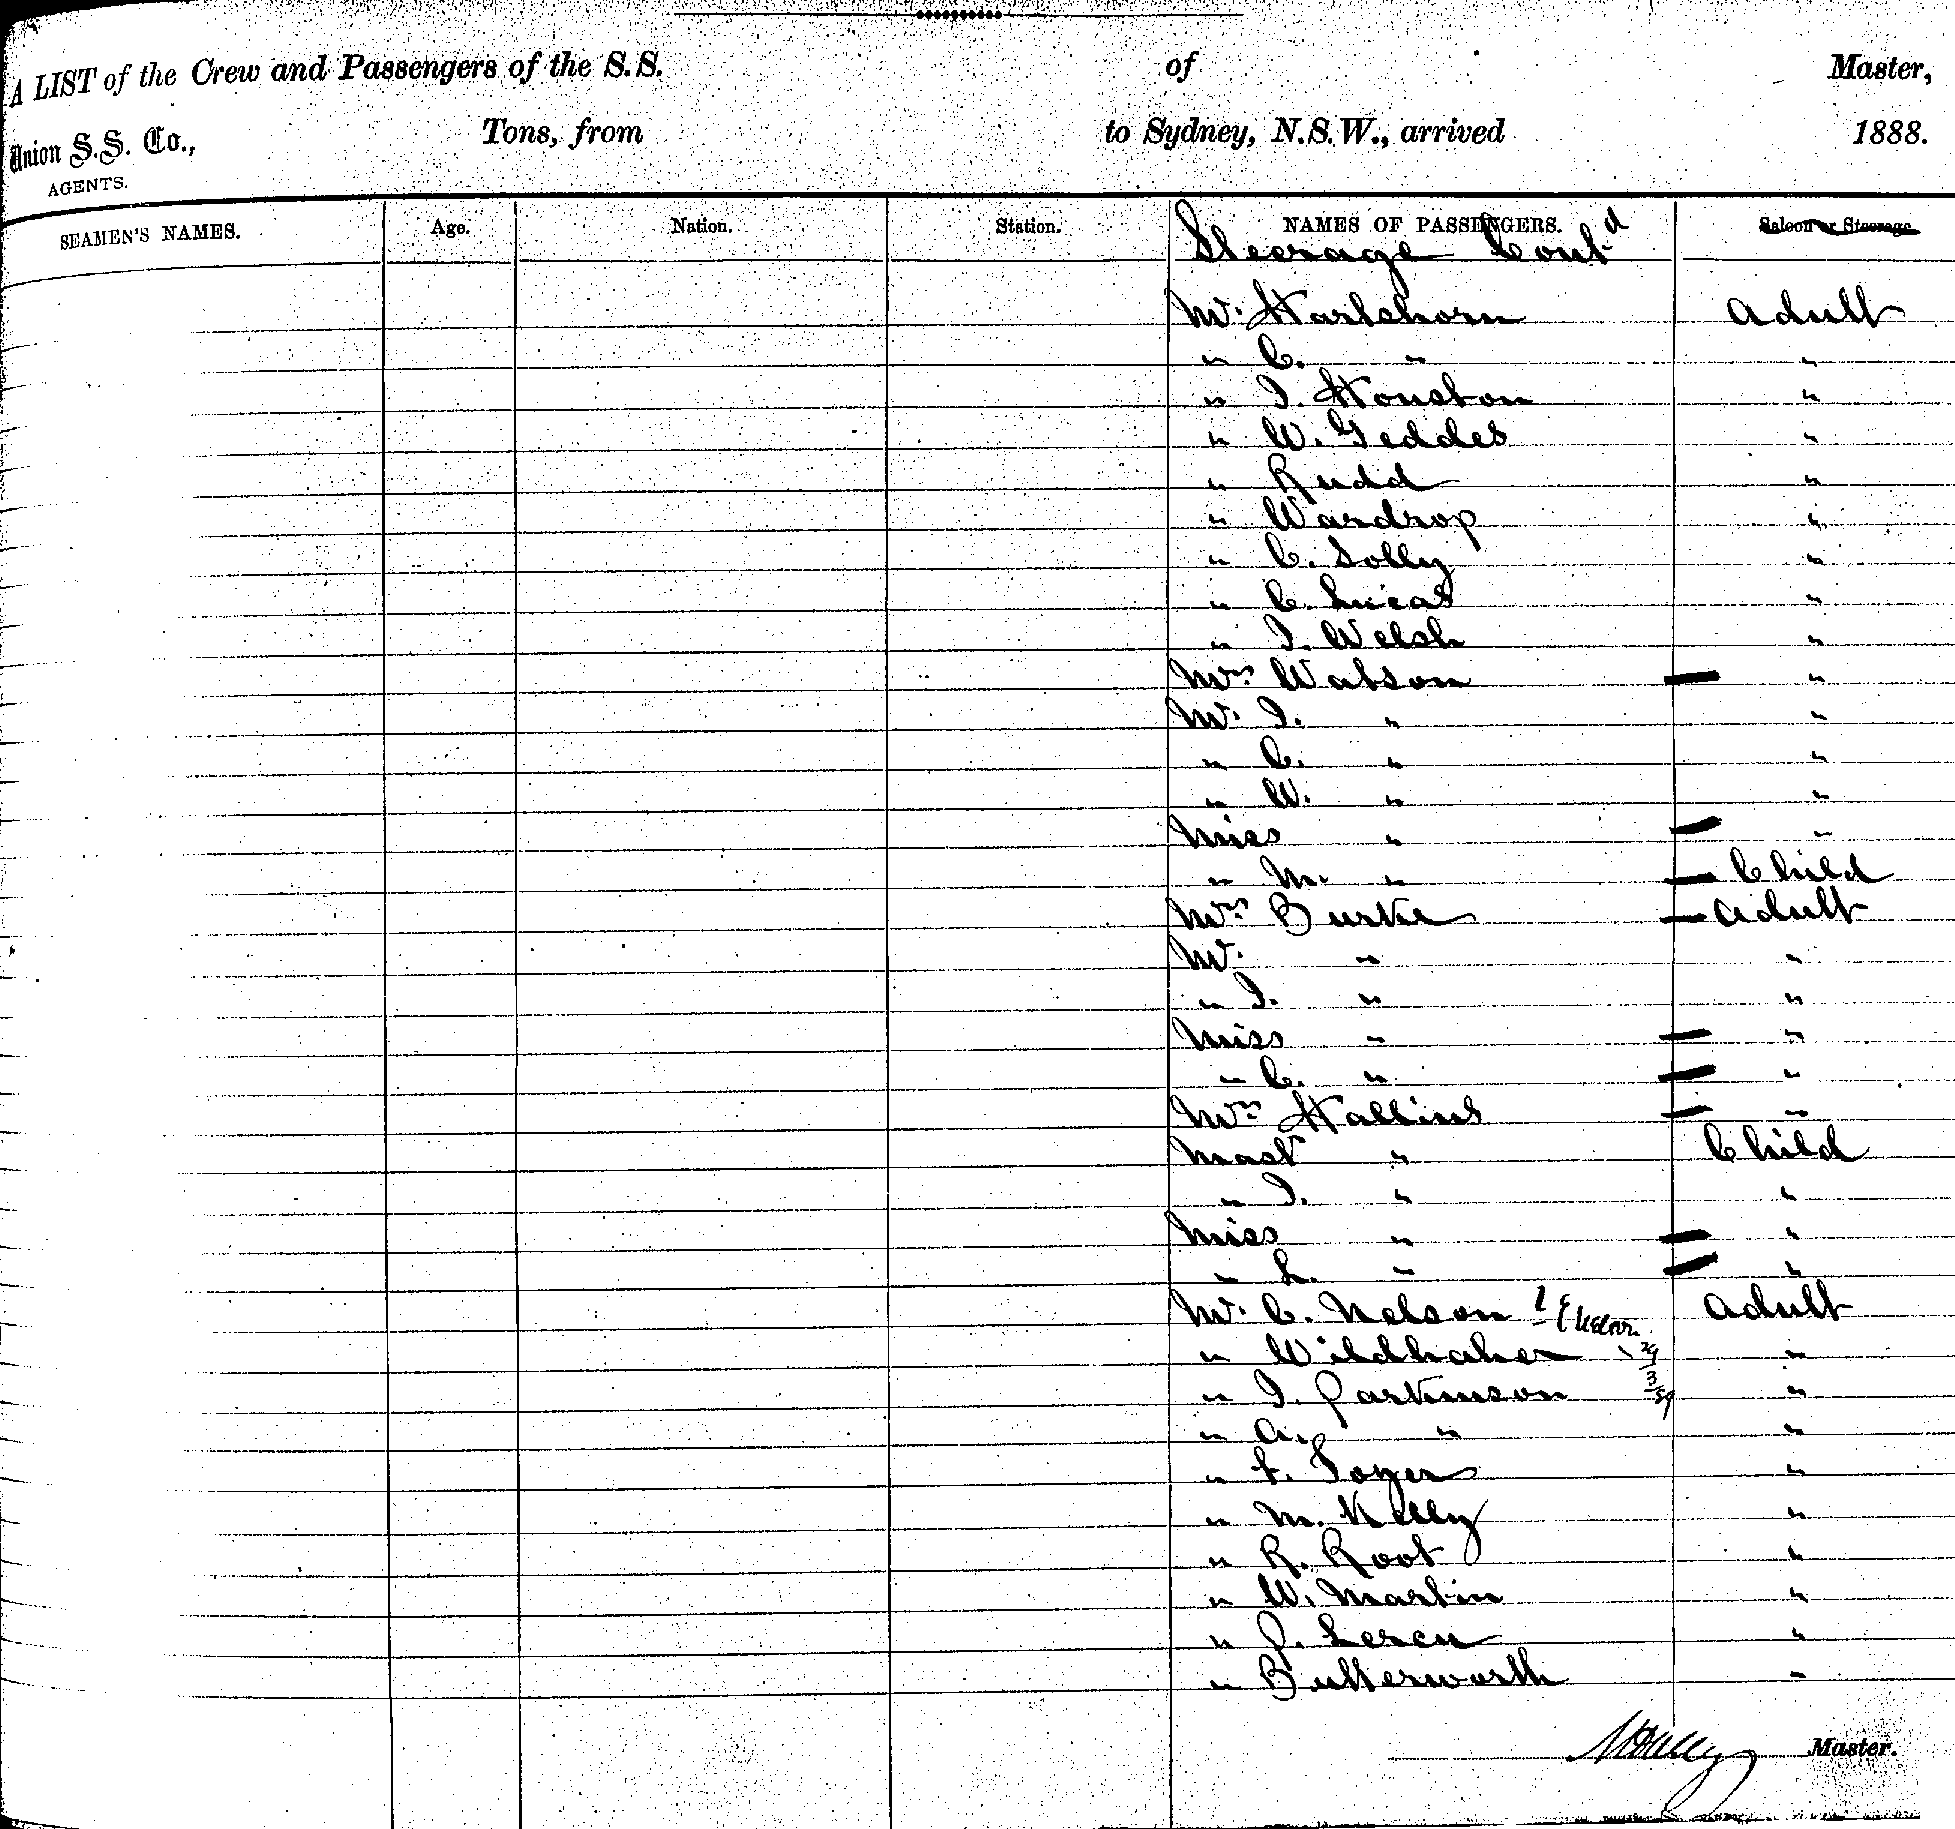 A LIST of the Crew and Passengers of the S.S. of Master,
Union S.S. Co., Tons, from to Sydney, N.S.W., arrived 1888.
AGENTS.
SEAMEN'S NAMES. Age. Nation. Station. NAMES OF PASSENGERS. Saloon or Steerage
Steerage Contd
Mr. Hartshorn Adult
" C. " "
" J. Houston "
" W. Geddes "
" Rudd "
" Wardrop "
" C. Solly "
" C. Lucas "
" J. Welsh "
Mrs Watson — "
Mr. J. " "
" C. " "
" W. " "
Miss " — "
" M. " — Child
Mrs Burke — Adult
Mr. " "
" J. " "
Miss " — "
" C. " — "
Mrs Hallins — "
Mastr " Child
" J. " "
Miss " — "
" L. " — "
Mr. C. Nelson Adult
" Wildhaber "
" J. Parkinson "
" A. " "
" F. "
" M. Kelly "
" R. Root "
" W. Martin "
" P. "
" Butterworth "
Master.